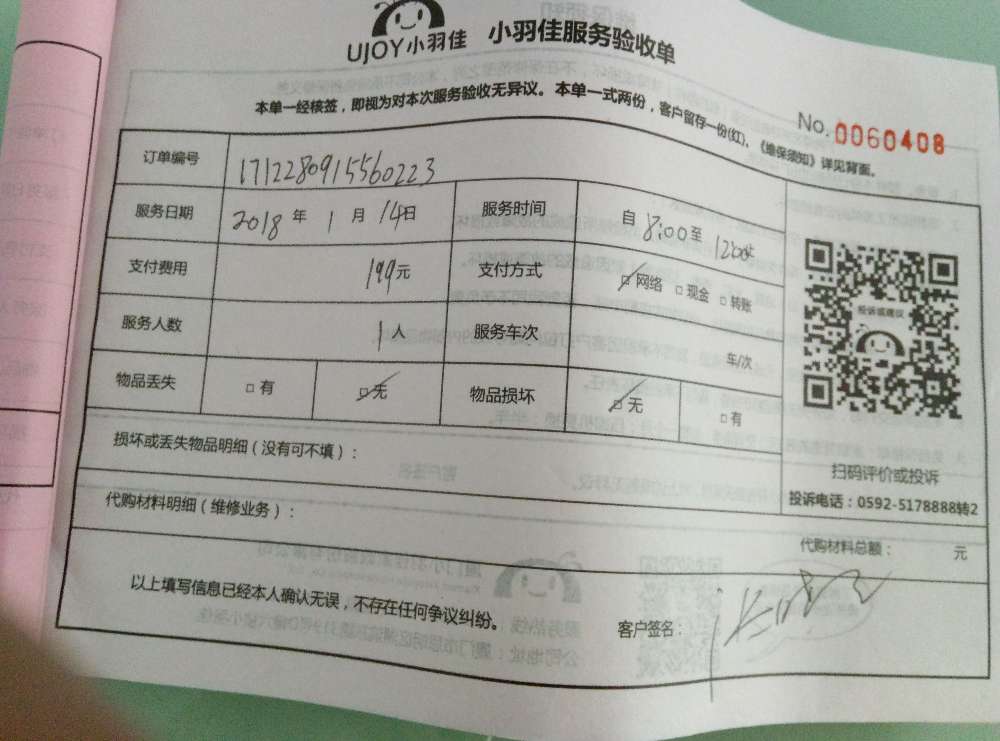 UJOY小羽佳 小羽佳服务验收单
本单一经核签，即视为对本次服务验收无异议。本单一式两份，客户留存一份(红)，《维保须知》详见背面。
No. 0060408
订单编号 1712280915560223
服务日期 2018 年 1 月 14日 服务时间 自 8:00 至
支付费用 199元 支付方式 网络 现金 转账
服务人数 1 人 服务车次 车/次
物品丢失 有 无 物品损坏 无 有
投诉或建议
损坏或丢失物品明细（没有可不填）：
扫码评价或投诉
投诉电话：0592-5178888转2
代购材料明细（维修业务）：
代购材料总额： 元
以上填写信息已经本人确认无误，不存在任何争议纠纷。
客户签名：